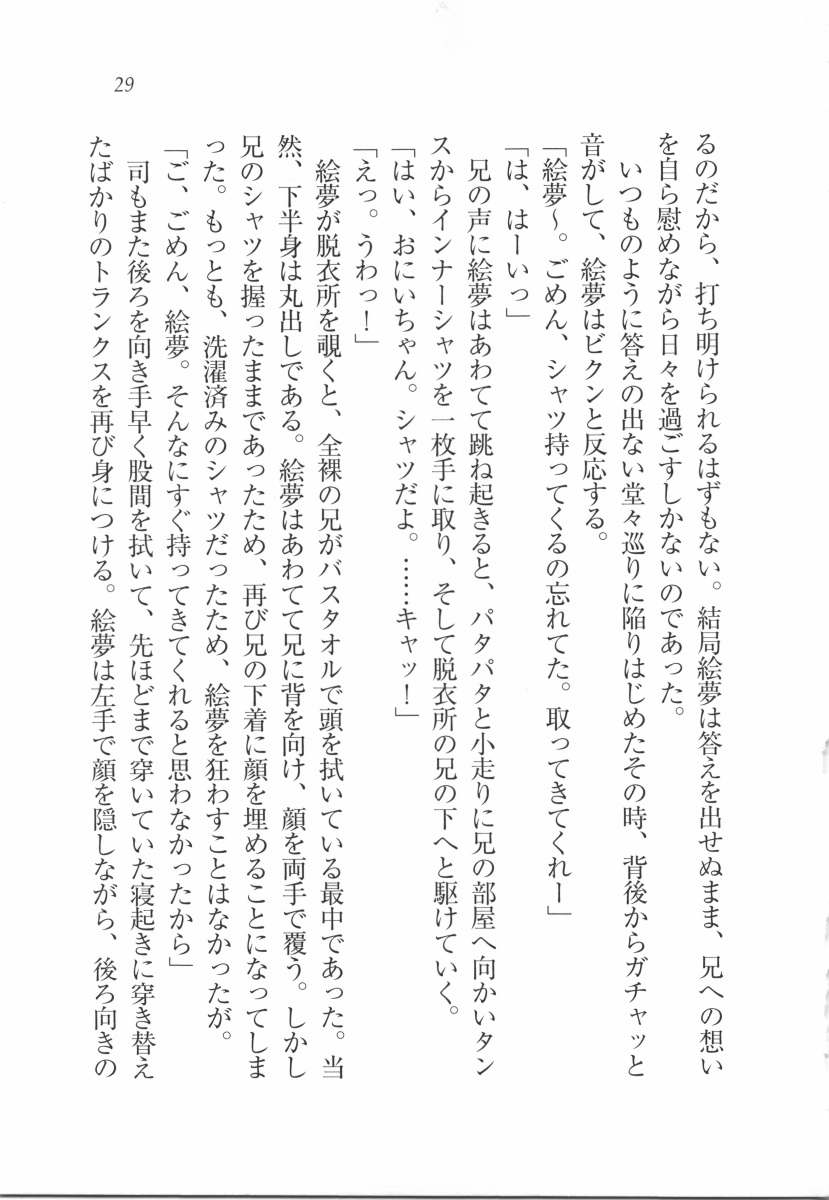 29
るのだから、打ち明けられるはずもない。結局絵夢は答えを出せぬまま、兄への想い
を自ら慰めながら日々を過ごすしかないのであった。
いつものように答えの出ない堂々巡りに陥りはじめたその時、背後からガチャッと
音がして、絵夢はビクンと反応する。
「絵夢～。ごめん、シャツ持ってくるの忘れてた。取ってきてくれー」
「は、はーいっ」
兄の声に絵夢はあわてて跳ね起きると、パタパタと小走りに兄の部屋へ向かいタン
スからインナーシャツを一枚手に取り、そして脱衣所の兄の下へと駆けていく。
「はい、おにいちゃん。シャツだよ。……キャッ！」
「えっ。うわっ！」
絵夢が脱衣所を覗くと、全裸の兄がバスタオルで頭を拭いている最中であった。当
然、下半身は丸出しである。絵夢はあわてて兄に背を向け、顔を両手で覆う。しかし
兄のシャツを握ったままであったため、再び兄の下着に顔を埋めることになってしま
った。もっとも、洗濯済みのシャツだったため、絵夢を狂わすことはなかったが。
「ご、ごめん、絵夢。そんなにすぐ持ってきてくれると思わなかったから」
司もまた後ろを向き手早く股間を拭いて、先ほどまで穿いていた寝起きに穿き替え
たばかりのトランクスを再び身につける。絵夢は左手で顔を隠しながら、後ろ向きの